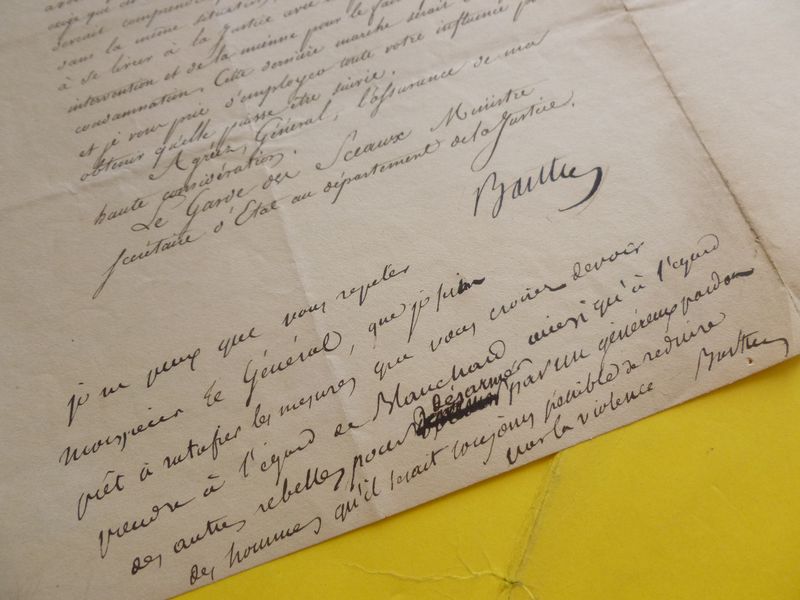 devait comprendre
dans la même situation,
à se livrer à la Justice avec
intervention et de la mienne pour le faire
condamnation. Cette dernière marche serait
et je vous prie d'employer toute votre influence pour
obtenir qu'elle puisse être suivie.
Agréez, Général, l'assurance de ma
haute considération.
Le Garde des Sceaux Ministre
Secrétaire d'Etat au département de la Justice.
Barthe
je ne peux que vous repeter
Monsieur le Général, que je suis
prêt à ratifier les mesures que vous croirez devoir
prendre à l'égard de Blanchard ainsi qu'à l'égard
des autres rebelles pour désarmer par un généreux pardon
des hommes qu'il serait toujours possible de reduire
par la violence Barthe